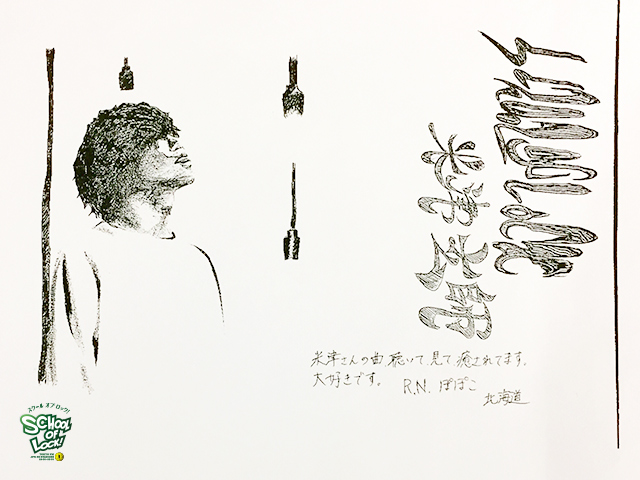 米津玄師
米津さんの曲、聴いて、見て、癒されてます。
大好きです。 R.N. ぽぽこ
北海道
スクール オブ ロック!
SCHOOL
OF
LOCK!